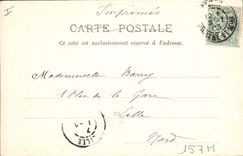 Imprimés
CARTE POSTALE
Ce côté est exclusivement réservé à l'adresse.
Mademoiselle Barry
1 Place de la Gare
Lille
Nord
157M